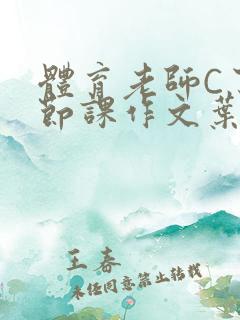 體育老師C
節課作文葉
王春
未经同意禁止转载